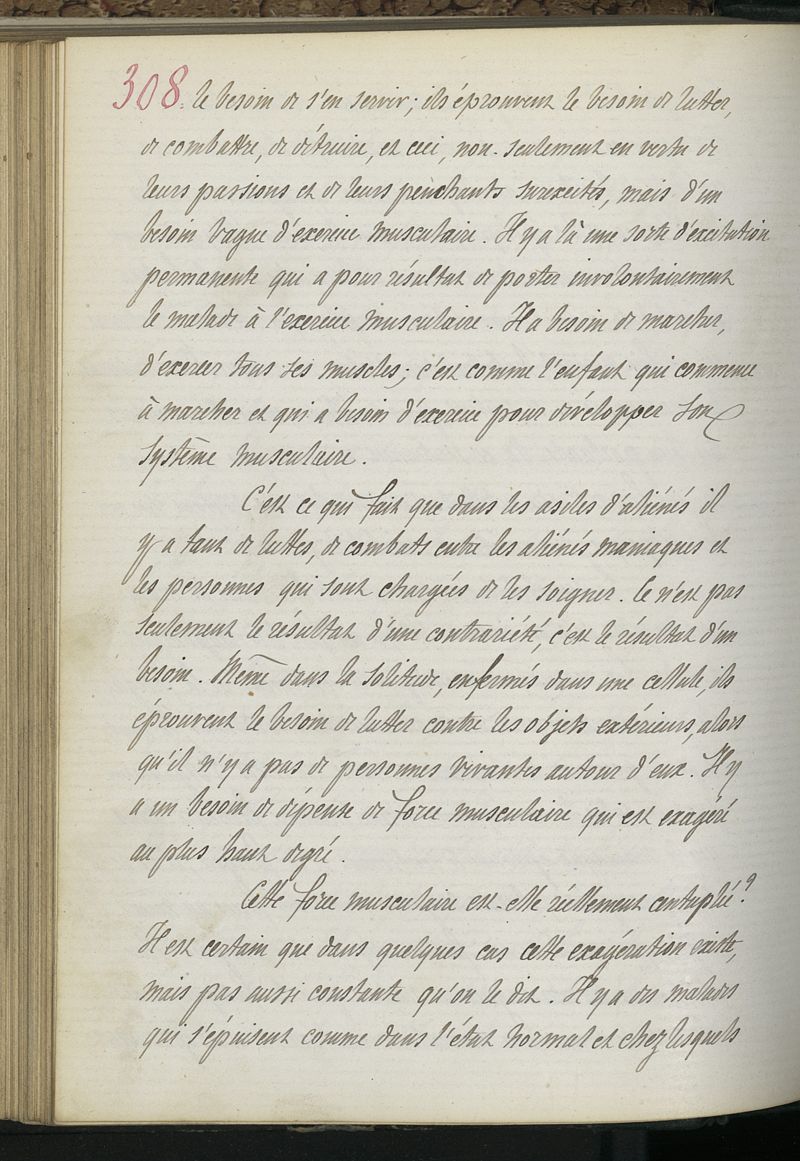 308. le besoin de s'en servir; ils éprouvent le besoin de lutter,
de combattre, de détruire, et ceci, non-seulement en vertu de
leurs passions et de leurs penchants surexcités, mais d'un
besoin vague d'exercice musculaire. Il y a là une sorte d'excitation
permanente qui a pour résultat de porter involontairement
le malade à l'exercice musculaire. Il a besoin de marcher,
d'exercer tous ses muscles; c'est comme l'enfant qui commence
à marcher et qui a besoin d'exercice pour développer son
système musculaire.
C'est ce qui fait que dans les asiles d'aliénés il
y a tant de luttes, de combats entre les aliénés maniaques et
les personnes qui sont chargées de les soigner. Ce n'est pas
seulement le résultat d'une contrariété, c'est le résultat d'un
besoin. Même dans la solitude, enfermés dans une cellule, ils
éprouvent le besoin de lutter contre les objets extérieurs, alors
qu'il n'y a pas de personnes vivantes autour d'eux. Il y
a un besoin de dépense de force musculaire qui est exagéré
au plus haut degré.
Cette force musculaire est-elle réellement centuplée?
Il est certain que dans quelques cas cette exagération existe,
mais pas aussi constante qu'on le dit. Il y a des malades
qui s'épuisent comme dans l'état normal et chez lesquels